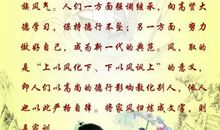 族风气。人们一方面强调继承，向高贤大
德学习，保持德行不坠；另一方面，努力
做好自己，成为新一代的典范。风，取的
是《上以风化下、下以风佩上》的意义，
即人们以高尚的德行影响教化别人，他人
也以此严格自律，将家风淬炼成文本，则
是家训